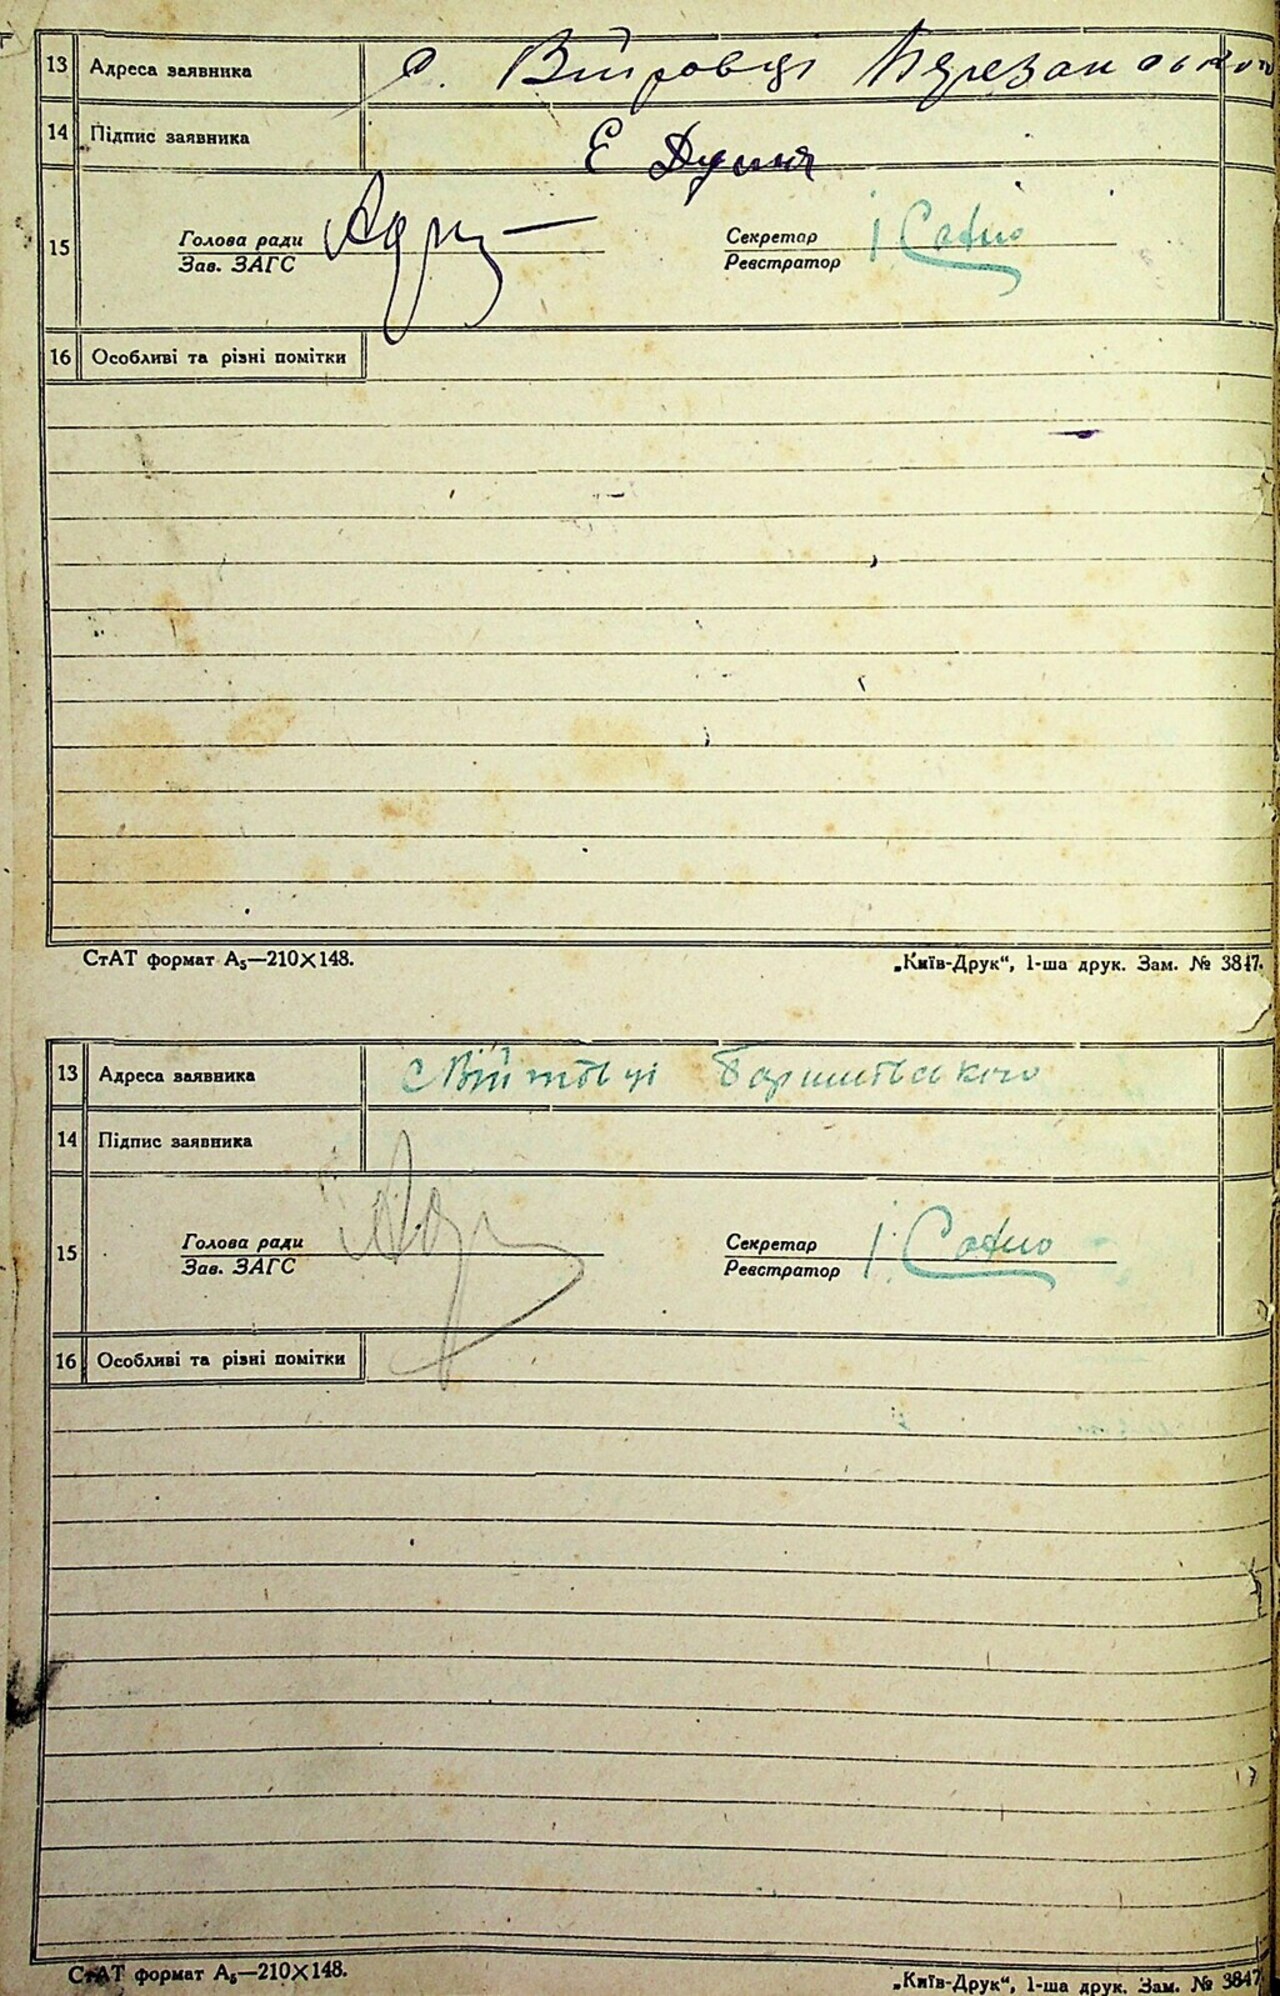 13 Адреса заявника с. Війтовці Березанського
14 Підпис заявника Є
15 Голова ради Секретар
Зав. ЗАГС Реєстратор
16 Особливі та різні помітки
СтАТ формат А₅—210×148. „Київ-Друк“, 1-ша друк. Зам. № 3847.
13 Адреса заявника с Війтовці Баришівського
14 Підпис заявника
15 Голова ради Секретар
Зав. ЗАГС Реєстратор
16 Особливі та різні помітки
СтАТ формат А₅—210×148. „Київ-Друк“, 1-ша друк. Зам. № 3847